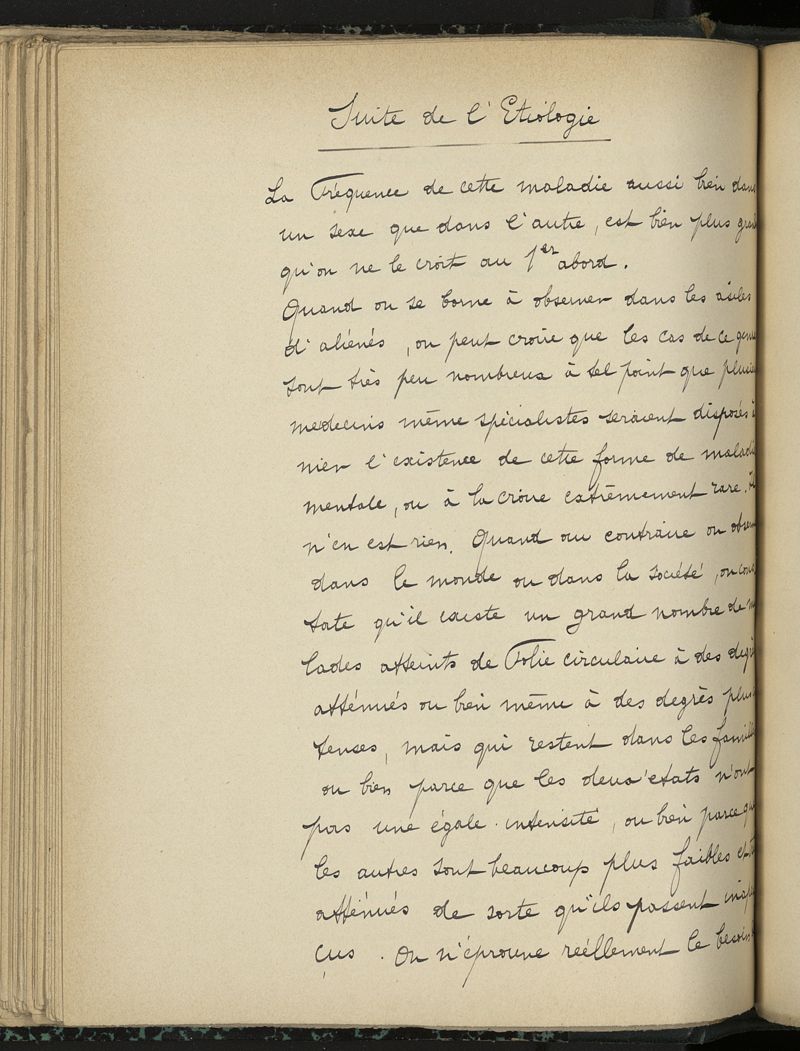 Suite de l'Etiologie
La Fréquence de cette maladie aussi bien dans
un sexe que dans l'autre, est bien plus
qu'on ne le croit au 1er abord.
Quand on se borne à observer dans les asiles
d'aliénés, on peut croire que les cas de ce
sont très peu nombreux à tel point que
medecins même spécialistes seraient disposés à
nier l'existence de cette forme de
mentale, ou à la croire extrêmement rare.
n'en est rien. Quand au contraire on
dans le monde ou dans la société, on
tate qu'il existe un grand nombre de
lades atteints de Folie circulaire à des
atténués ou bien même à des degrès
tenses, mais qui restent dans les
ou bien parce que les deux etats n'ont
pas une égale intensité, ou bien parce
les autres sont beaucoup plus faibles et
atténués de sorte qu'ils passent
çus. On n'éprouve réellement le besoin